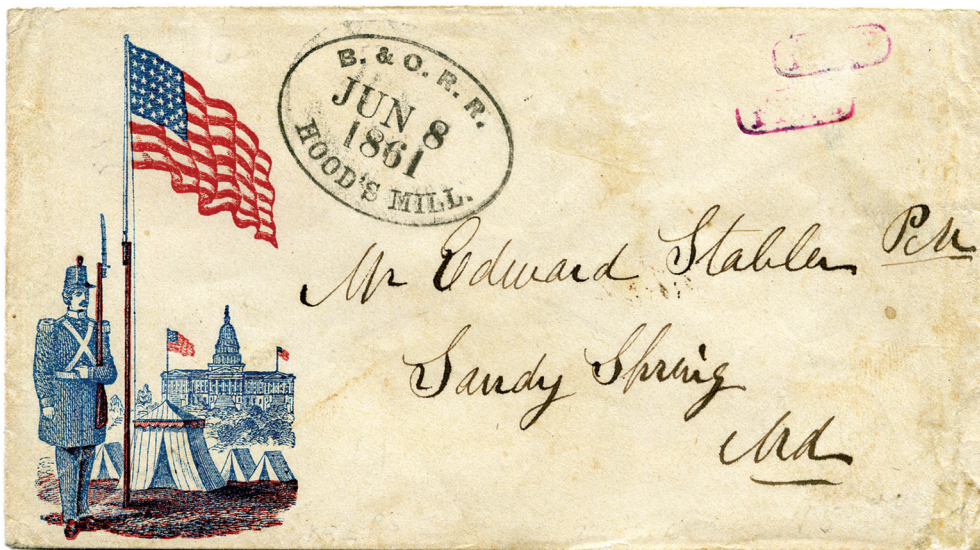 B. & O. R. R.
JUN 8
1861
HOOD'S MILL.
Mr Edward Stabler P.M
Sandy Spring
Md